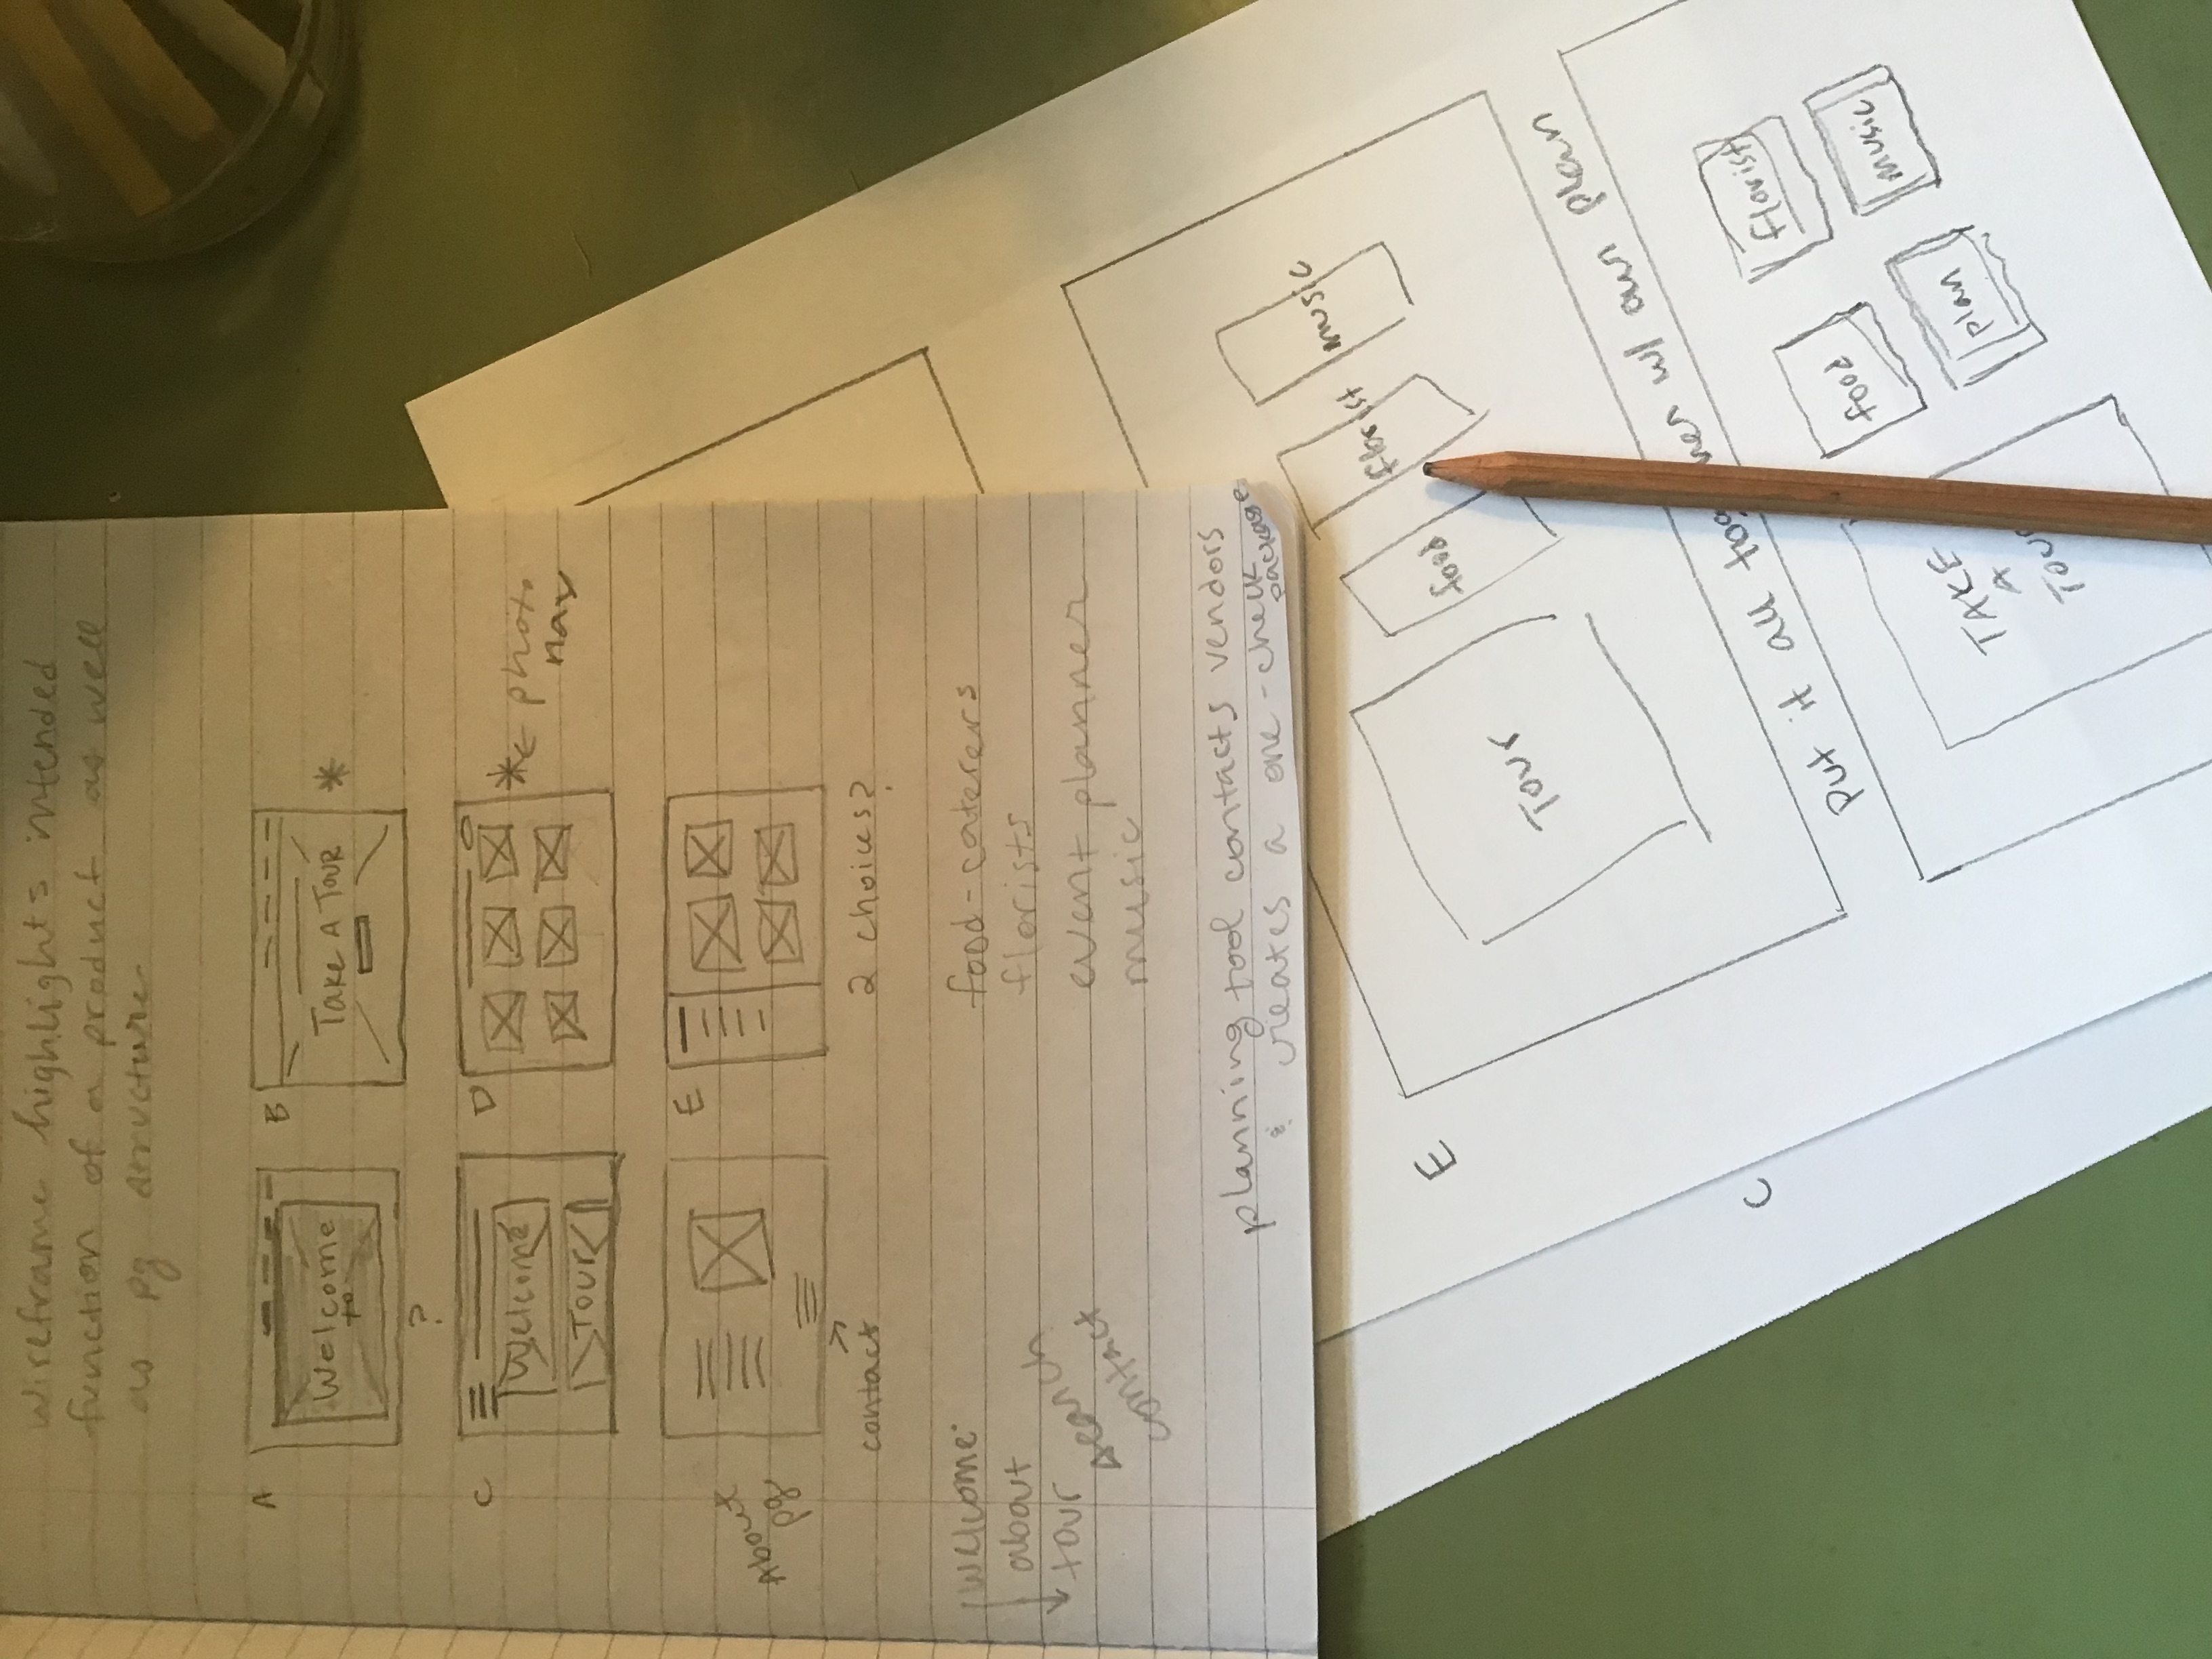 Wireframe highlights intended
function of a product as well
as pg structure
A
Welcome
to
?
B
Take A Tour
*
C
Welcome
Tour
D
* ← photo
nav
About
pg
contact
E
2 choices?
welcome
about
tour
search
contact
food-caterers
florists
event planner
music
planning tool contacts vendors
& creates a one-check
package
E
Tour
food
florist
music
Put it all tog her w/ own plan
C
TAKE
A
TOUR
food
florist
plan
music